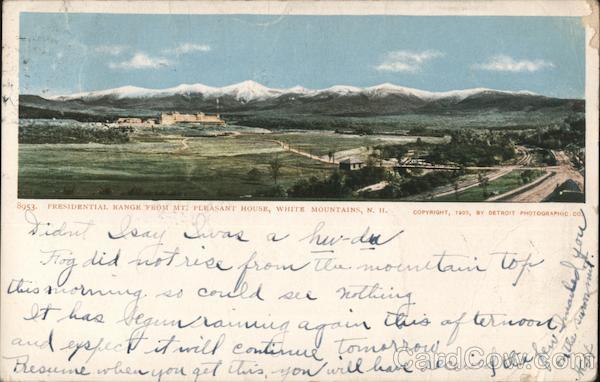 8953. PRESIDENTIAL RANGE FROM MT. PLEASANT HOUSE, WHITE MOUNTAINS, N. H.
COPYRIGHT, 1905, BY DETROIT PHOTOGRAPHIC CO.
Didnt I say I was a
Fog did not rise from the mountain top
this morning so could see nothing
It has begun raining again this afternoon,
and expect it will continue tomorrow.
Presume when you get this, you will have
mailed you
at the summit.
CardCow.com